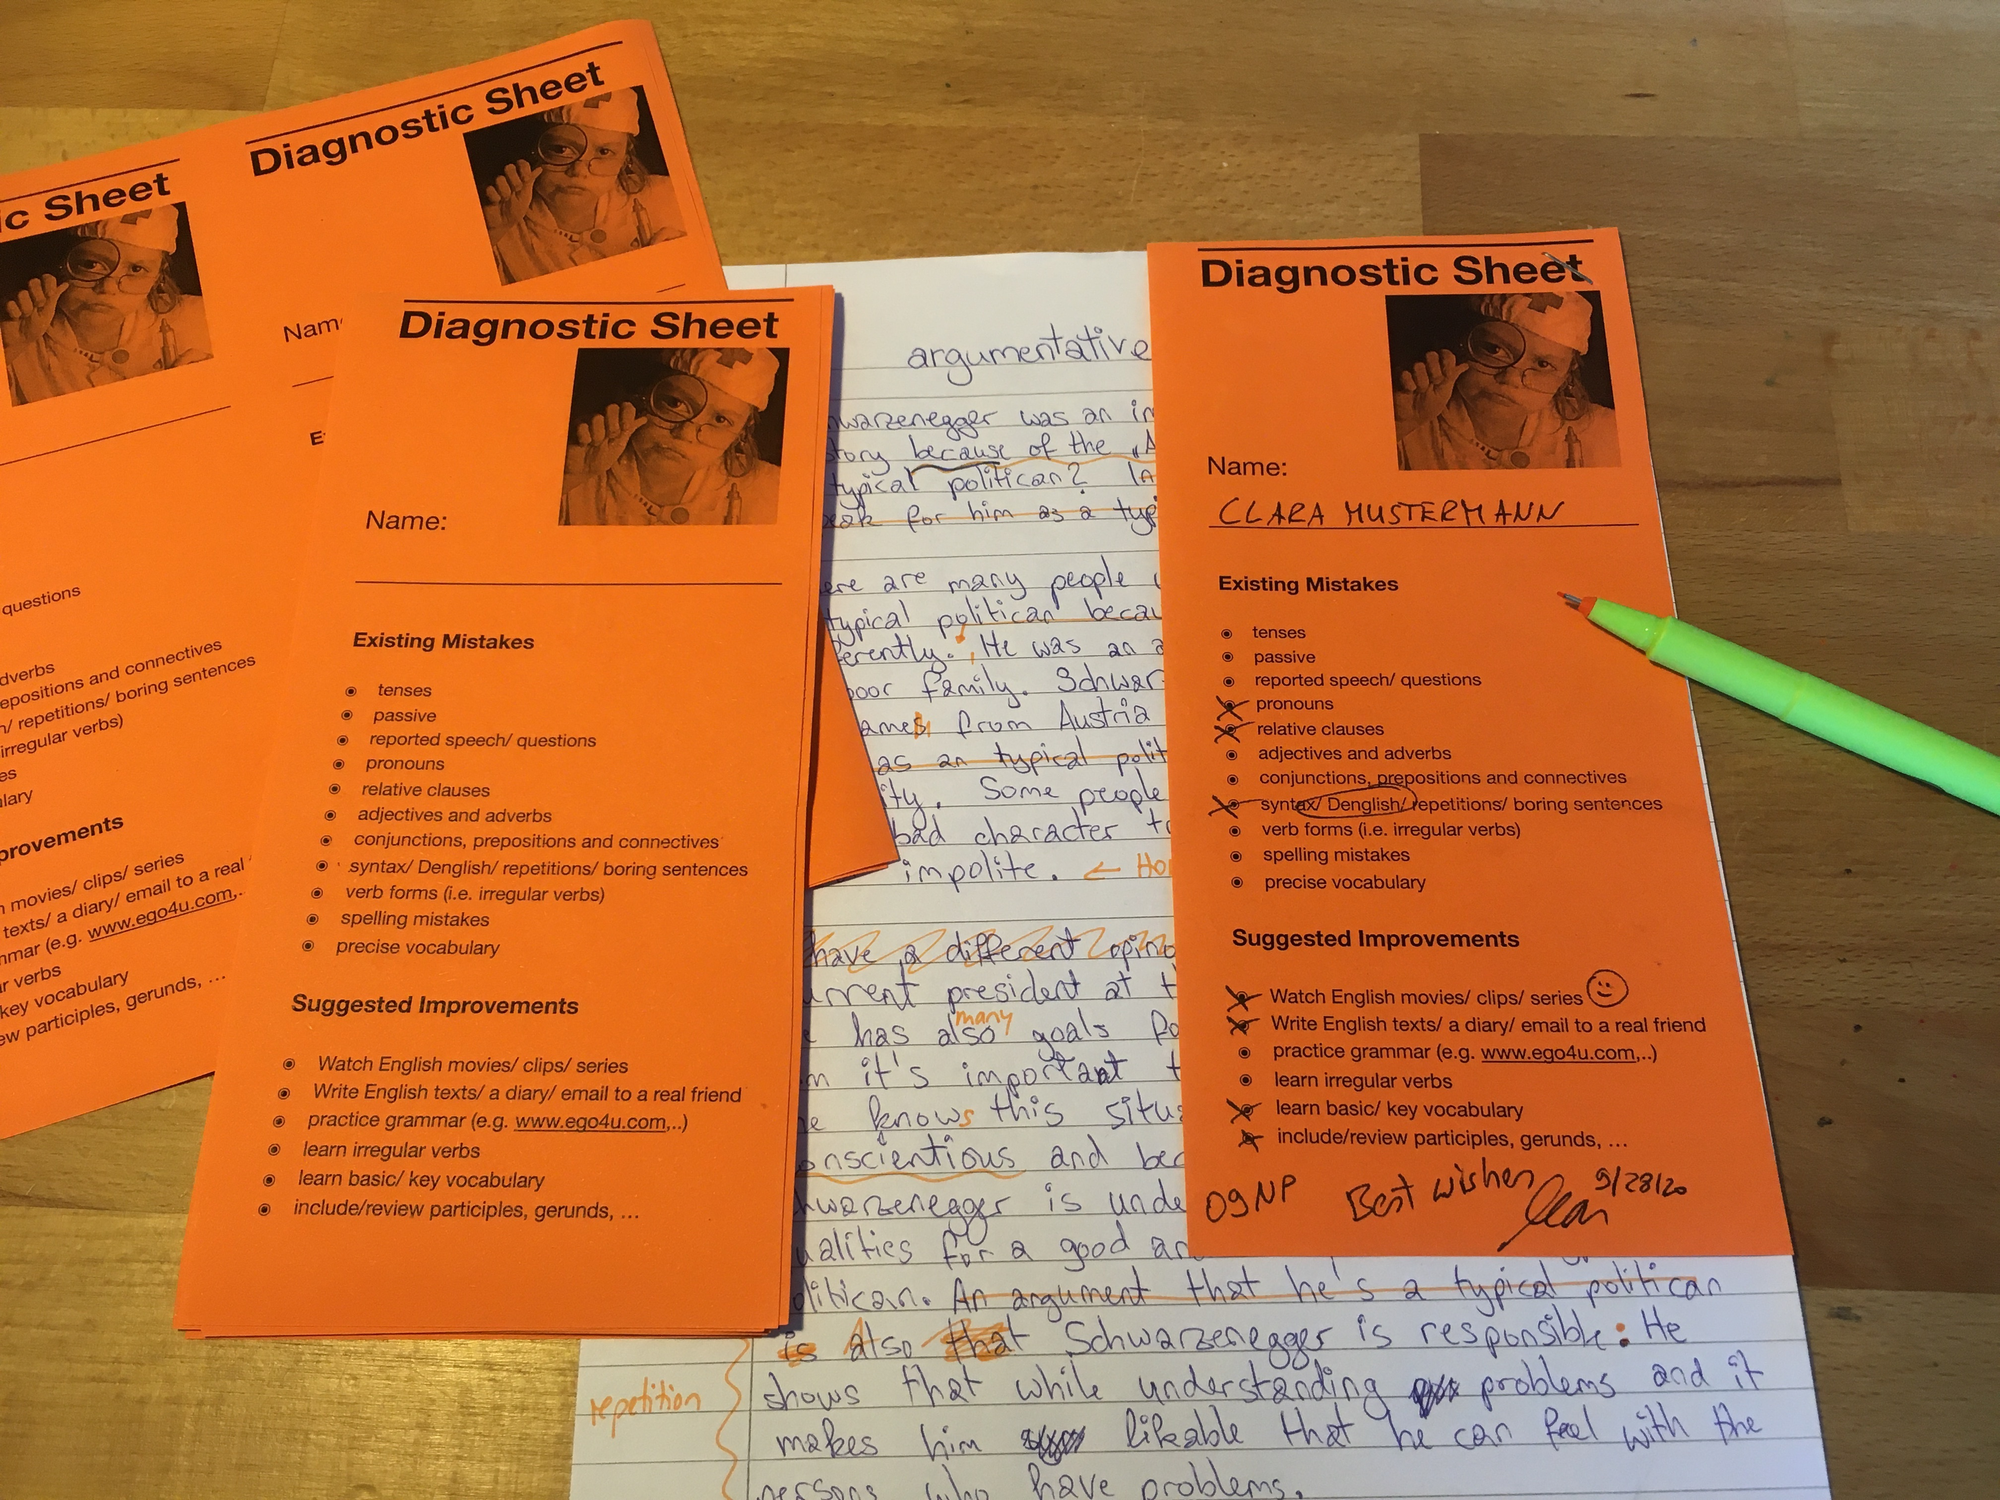 ic Sheet
questions
dverbs
epositions and connectives
n/ repetitions/ boring sentences
irregular verbs)
es
lary
provements
movies/ clips/ series
texts/ a diary/ email to a real
mmar (e.g. www.ego4u.com,..
ar verbs
key vocabulary
ew participles, gerunds, ...
Diagnostic Sheet
Nam
E
Diagnostic Sheet
Name:
Existing Mistakes
tenses
passive
reported speech/ questions
pronouns
relative clauses
adjectives and adverbs
conjunctions, prepositions and connectives
syntax/ Denglish/ repetitions/ boring sentences
verb forms (i.e. irregular verbs)
spelling mistakes
precise vocabulary
Suggested Improvements
Watch English movies/ clips/ series
Write English texts/ a diary/ email to a real friend
practice grammar (e.g. www.ego4u.com,..)
learn irregular verbs
learn basic/ key vocabulary
include/review participles, gerunds, ...
argumentative
hwarzenegger was an in
tory because of the „A
typical politican? (A
eak for him as a typ
ere are many people
typical politican becau
ferently. He was an a
poor family. Schwar
ames from Austria
as an typical polit
ity. Some people
bad character to
impolite. ← Ho
have a different opino
urrent president at t
many
has also goals fo
m it's important t
e knows this situa
onscientious and bec
hwarzenegger is unde
ualities for a good an
olitican. An argument that he's a typical politican
is also that Schwarzenegger is responsible: He
repetition
shows that while understanding problems and it
makes him likeable that he can feel with the
persons who have problems.
Diagnostic Sheet
Name:
CLARA MUSTERMANN
Existing Mistakes
tenses
passive
reported speech/ questions
pronouns
relative clauses
adjectives and adverbs
conjunctions, prepositions and connectives
syntax/ Denglish/ repetitions/ boring sentences
verb forms (i.e. irregular verbs)
spelling mistakes
precise vocabulary
Suggested Improvements
Watch English movies/ clips/ series
Write English texts/ a diary/ email to a real friend
practice grammar (e.g. www.ego4u.com,..)
learn irregular verbs
learn basic/ key vocabulary
include/review participles, gerunds, ...
09NP Best wishes 9/28/20